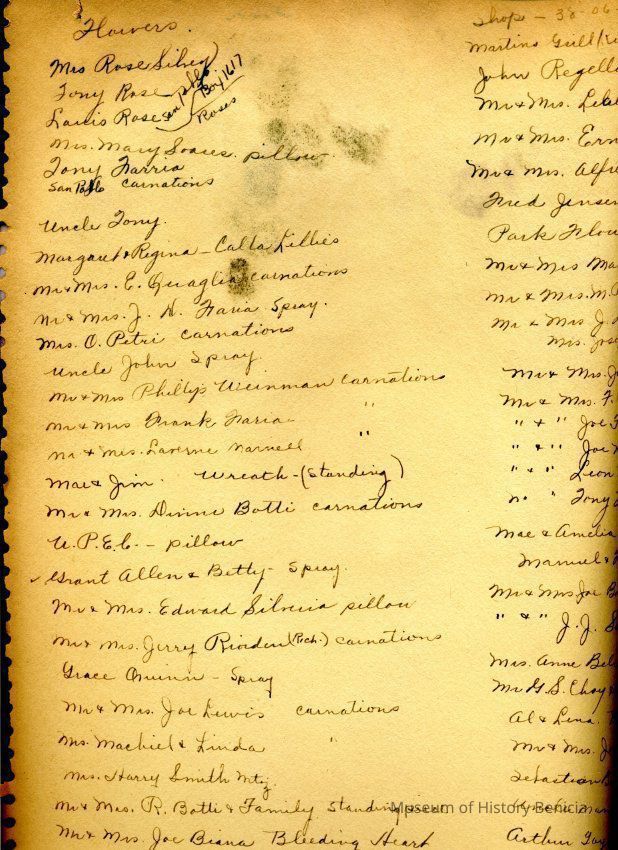 Flowers.
Mrs Rose Silvey
Tony Rose
Louis Rose
San Pablo
Box 1617
Roses
Mrs. Mary Soares. pillow.
Tony Farria
San Pablo carnations
Uncle Tony.
Margaret & Regina - Calla Lillies
Mr & Mrs. E. Quaglia carnations
Mr & Mrs. J. N. Faria Spray.
Mrs. C. Petri carnations
Uncle John Spray.
Mr & Mrs Phillys Weinman carnations
Mr & Mrs Frank Faria "
Mr & Mrs. Laverne "
Mae & Jim. Wreath - (Standing)
Mr & Mrs. Botti carnations
U.P.E.C. - pillow
✓ Grant Allen & Betty - Spray.
Mr & Mrs. Edward Silveria pillow
Mr & Mrs. Jerry Riorden (Rich.) carnations
Grace Quinn - Spray
Mr & Mrs. Joe Lewis carnations
Mrs. & Linda "
Mrs. Harry Smith Mtz
Mr & Mrs. R. Botti & Family Standing
Mr & Mrs. Joe Biana Bleeding Heart
Shop - 30-06
Martins Grill
John
Mr & Mrs.
Mr & Mrs. Ern
Mr & Mrs. Alfre
Fred Jensen
Park Flow
Mr & Mrs Ma
Mr & Mrs. M.
Mr & Mrs J.
Mrs. Jos
Mr & Mrs. J
Mr & Mrs. F.
" & " Joe
" & " Joe
" & " Leon
" " Tony
Mae & Amelia
Manuel &
Mr & Mrs Joe B
" & " J. J. S
Mrs. Anne Bel
Mr G. S. Choy &
Al & Lena.
Mr & Mrs. J
Sebastian
Arthur
Museum of History Benicia